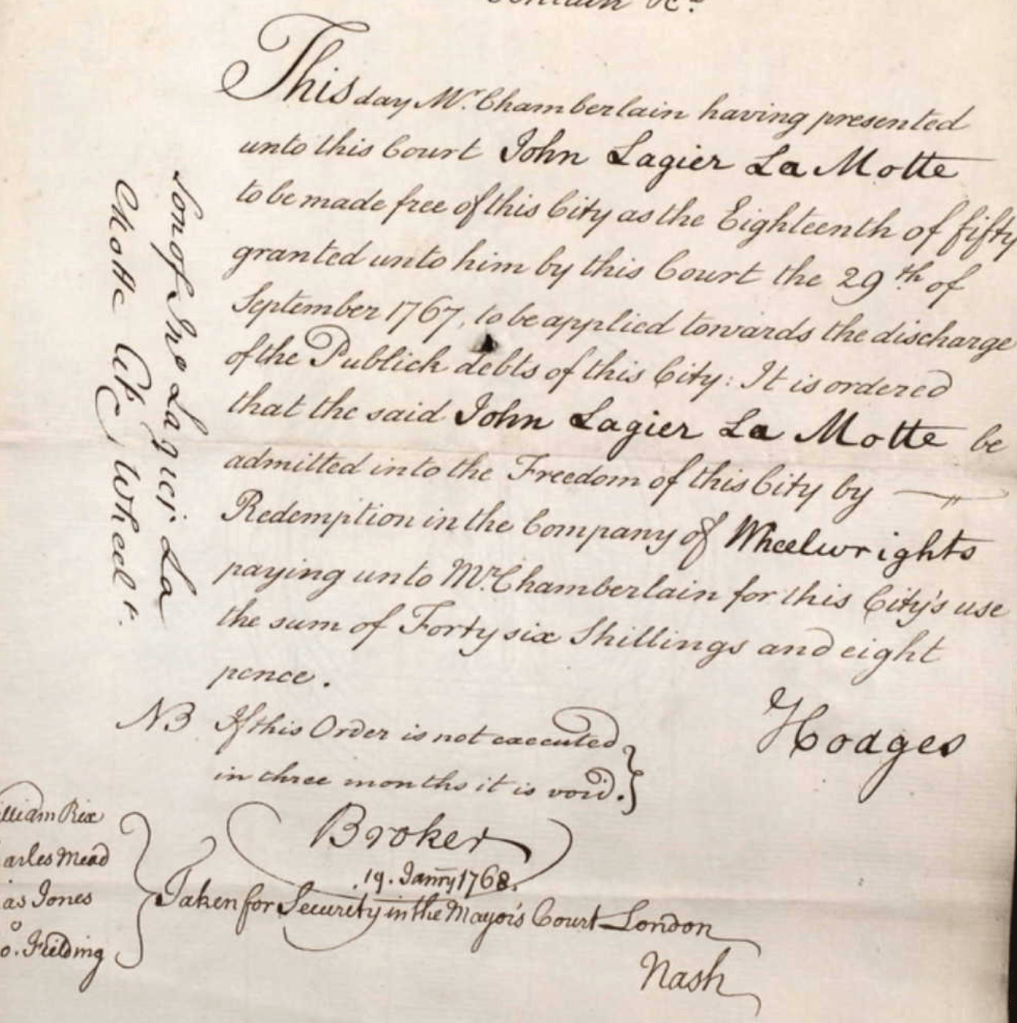 This day Mr. Chamberlain having presented
unto this Court John Lagier La Motte
to be made free of this City as the Eighteenth of fifty
granted unto him by this Court the 29th of
September 1767, to be applied towards the discharge
of the Publick debts of this City: It is ordered
that the said John Lagier La Motte be
admitted into the Freedom of this City by
Redemption in the Company of Wheelwrights
paying unto Mr. Chamberlain for this City's use
the sum of Forty six Shillings and eight
pence.
Hodges
NB If this Order is not executed
in three months it is void.
Broker
19. Janry 1768.
lliam Rix
arles Mead
as Jones
o. Fielding
Taken for Security in the Mayor's Court London
Nash
Son of Jno Lagier La
Motte Wheelr.